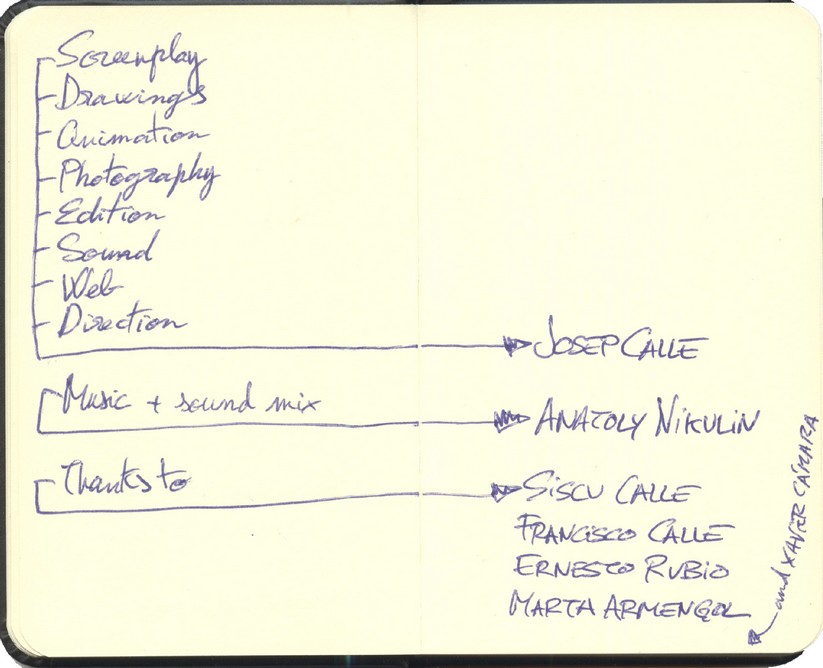 Screenplay
Drawings
Animation
Photography
Edition
Sound
Web
Direction
JOSEP CALLE
Music + sound mix
ANATOLY NIKULIN
Thanks to
SISCU CALLE
FRANCISCO CALLE
ERNESTO RUBIO
MARTA ARMENGOL
and XAVIER CÁMARA